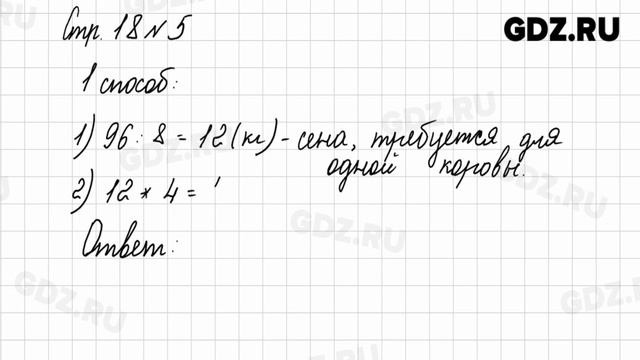 Стр. 18 № 5
GDZ.RU
1 способ:
1) 96 : 8 = 12 (кг) - сена, требуется для
одной коровы.
2) 12 * 4 = '
Ответ: